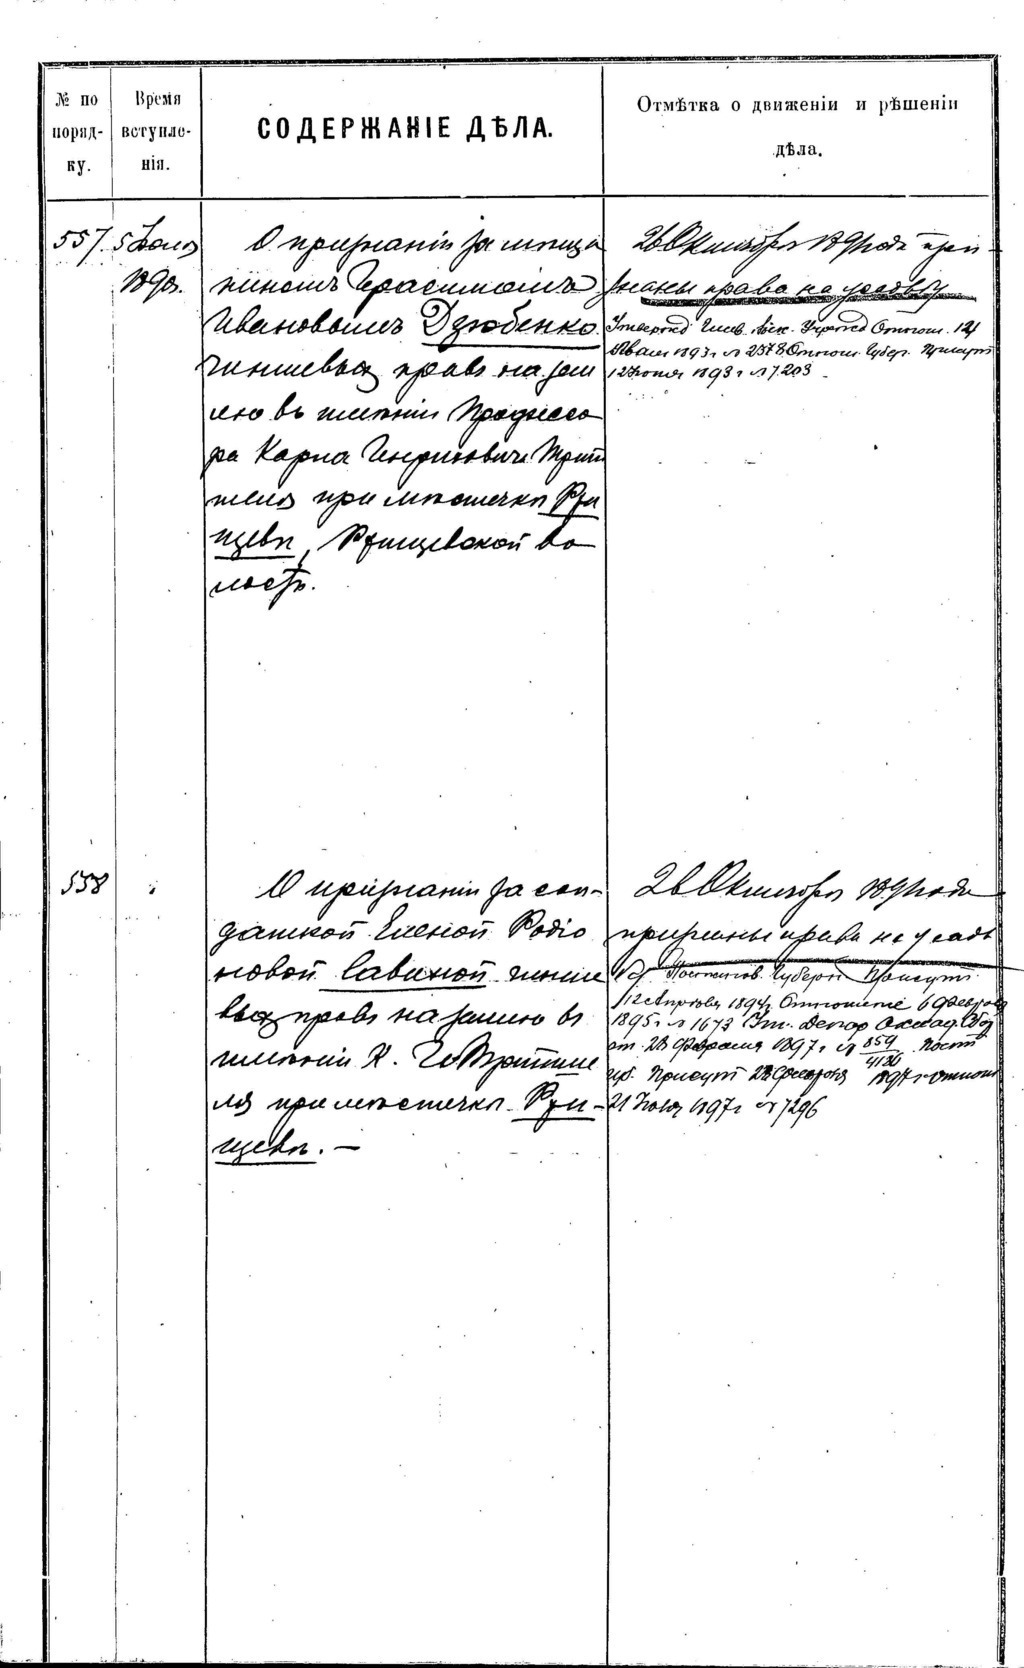 № по порядку.
Время вступленія.
СОДЕРЖАНІЕ ДѢЛА.
Отмѣтка о движеніи и рѣшеніи дѣла.
557. 5 Іюля
189 г.
О признаніи за мѣща
ниномъ Герасимомъ
Ивановымъ Дзюбенко
чиншевыхъ правъ на зем
лю въ имѣніи Профессо
ра Карла Генриховича
при мѣстечкѣ Ржи
щевѣ, Ржищевской во
лости.
26 Октября 189 года приз
наны права на усадьбу
Отнош. 14
1893 г. № 2578 Отнош. Губер. Присут.
12 Іюня 1893 г. № 7203
558
О признаніи за сол
даткой Еленой Родіо
новой Савиной чинше
выхъ правъ на землю въ
имѣніи К. Г.
ля при мѣстечкѣ Ржи-
щевѣ. —
26 Октября 189 года
признаны права на усадь
бу Постанов. Губерн. Присут.
12 1894 г. Отношение 6 Февраля
1895 г. № 1673 Деп. Оклад. Сбор
от 28 Февраля 1897 г. № 859/4136 Пост.
Губ. Присут 28 Февраля 1897 г. отнош
21 Іюля 1897 г. № 7296